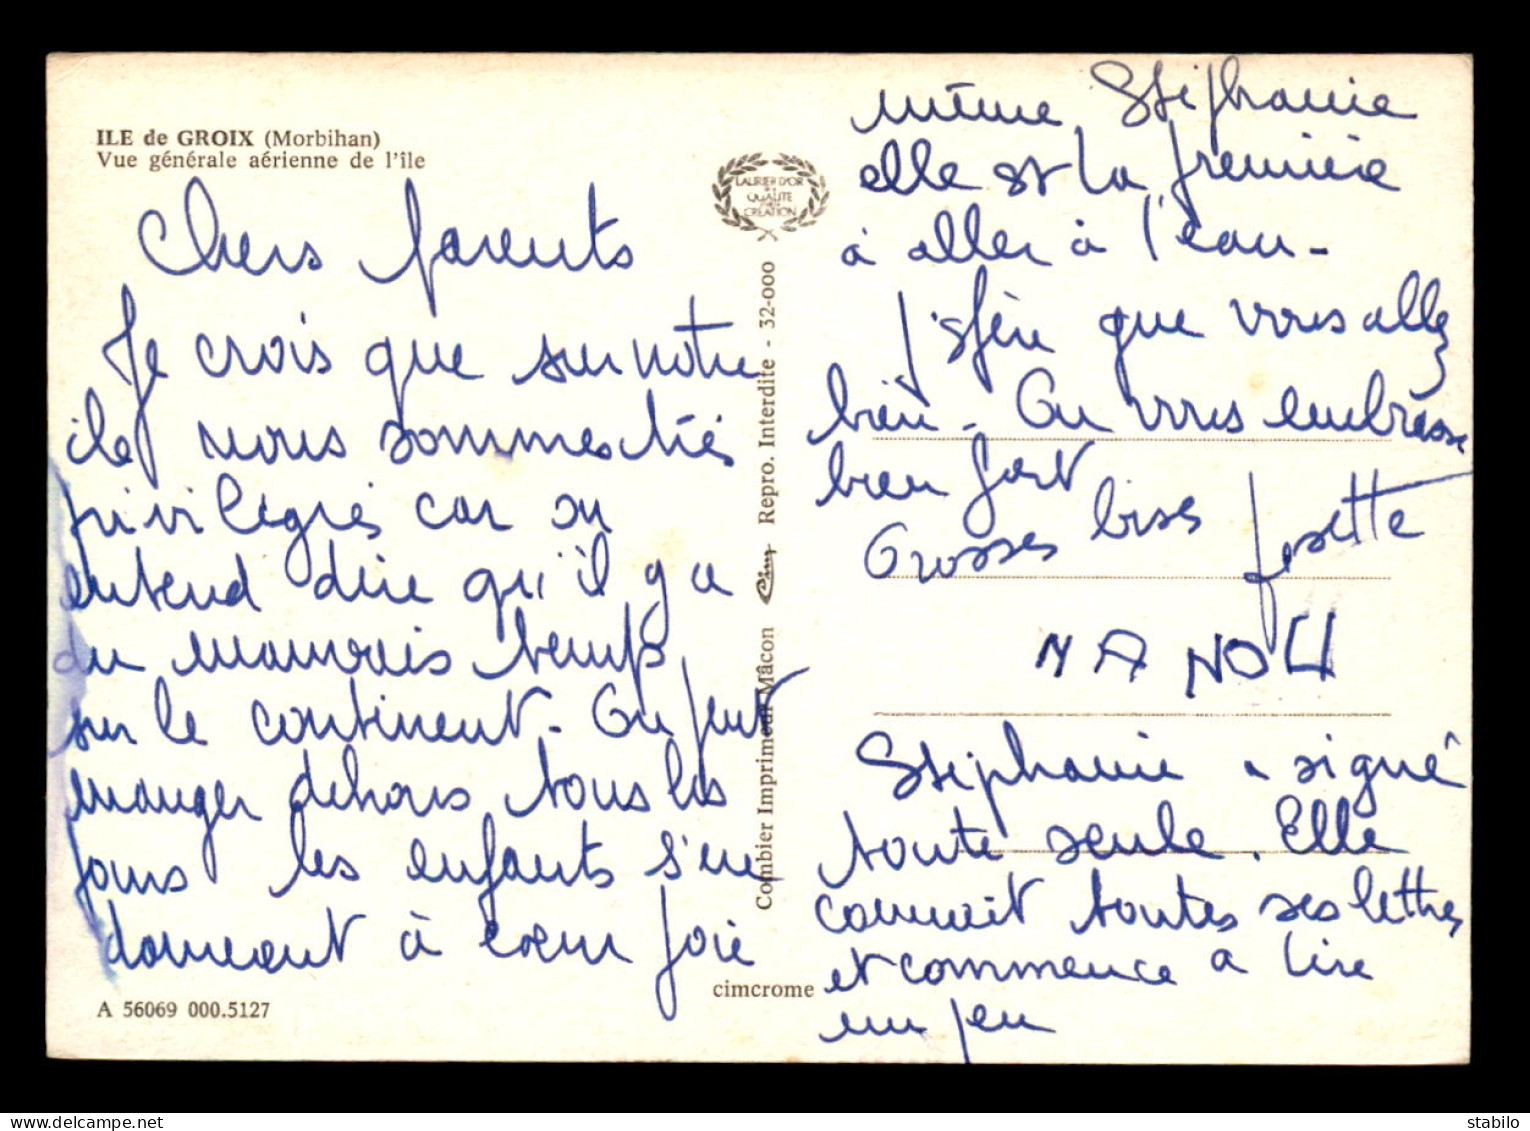 ILE de GROIX (Morbihan)
Vue générale aérienne de l'île
Chers parents
Je crois que sur notre
ile nous sommes très
privilégiés car on
entend dire qu'il y a
du mauvais temps
sur le continent. On peut
manger dehors tous les
jours les enfants s'en
donnent à cœur joie
A 56069 000.5127
LAURIER D'OR
DE LA
QUALITE
CREATION
Combier Imprimeur Mâcon Cim Repro. Interdite - 32-000
cimcrome
même Stéphanie
elle est la première
à aller à l'eau -
J'espère que vous allez
bien - On vous embrasse
bien fort
Grosses bises Josette
NANOU
Stéphanie a signé
toute seule. Elle
connait toutes ses lettres
et commence a lire
un peu